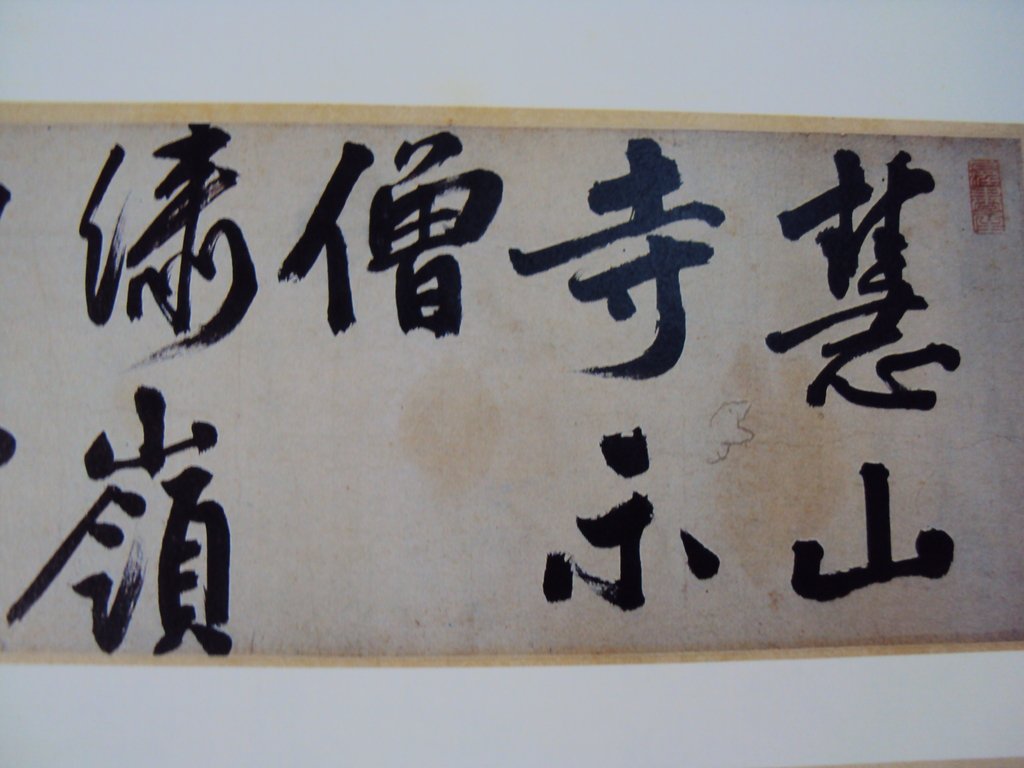 慧山
寺示
僧
繡嶺